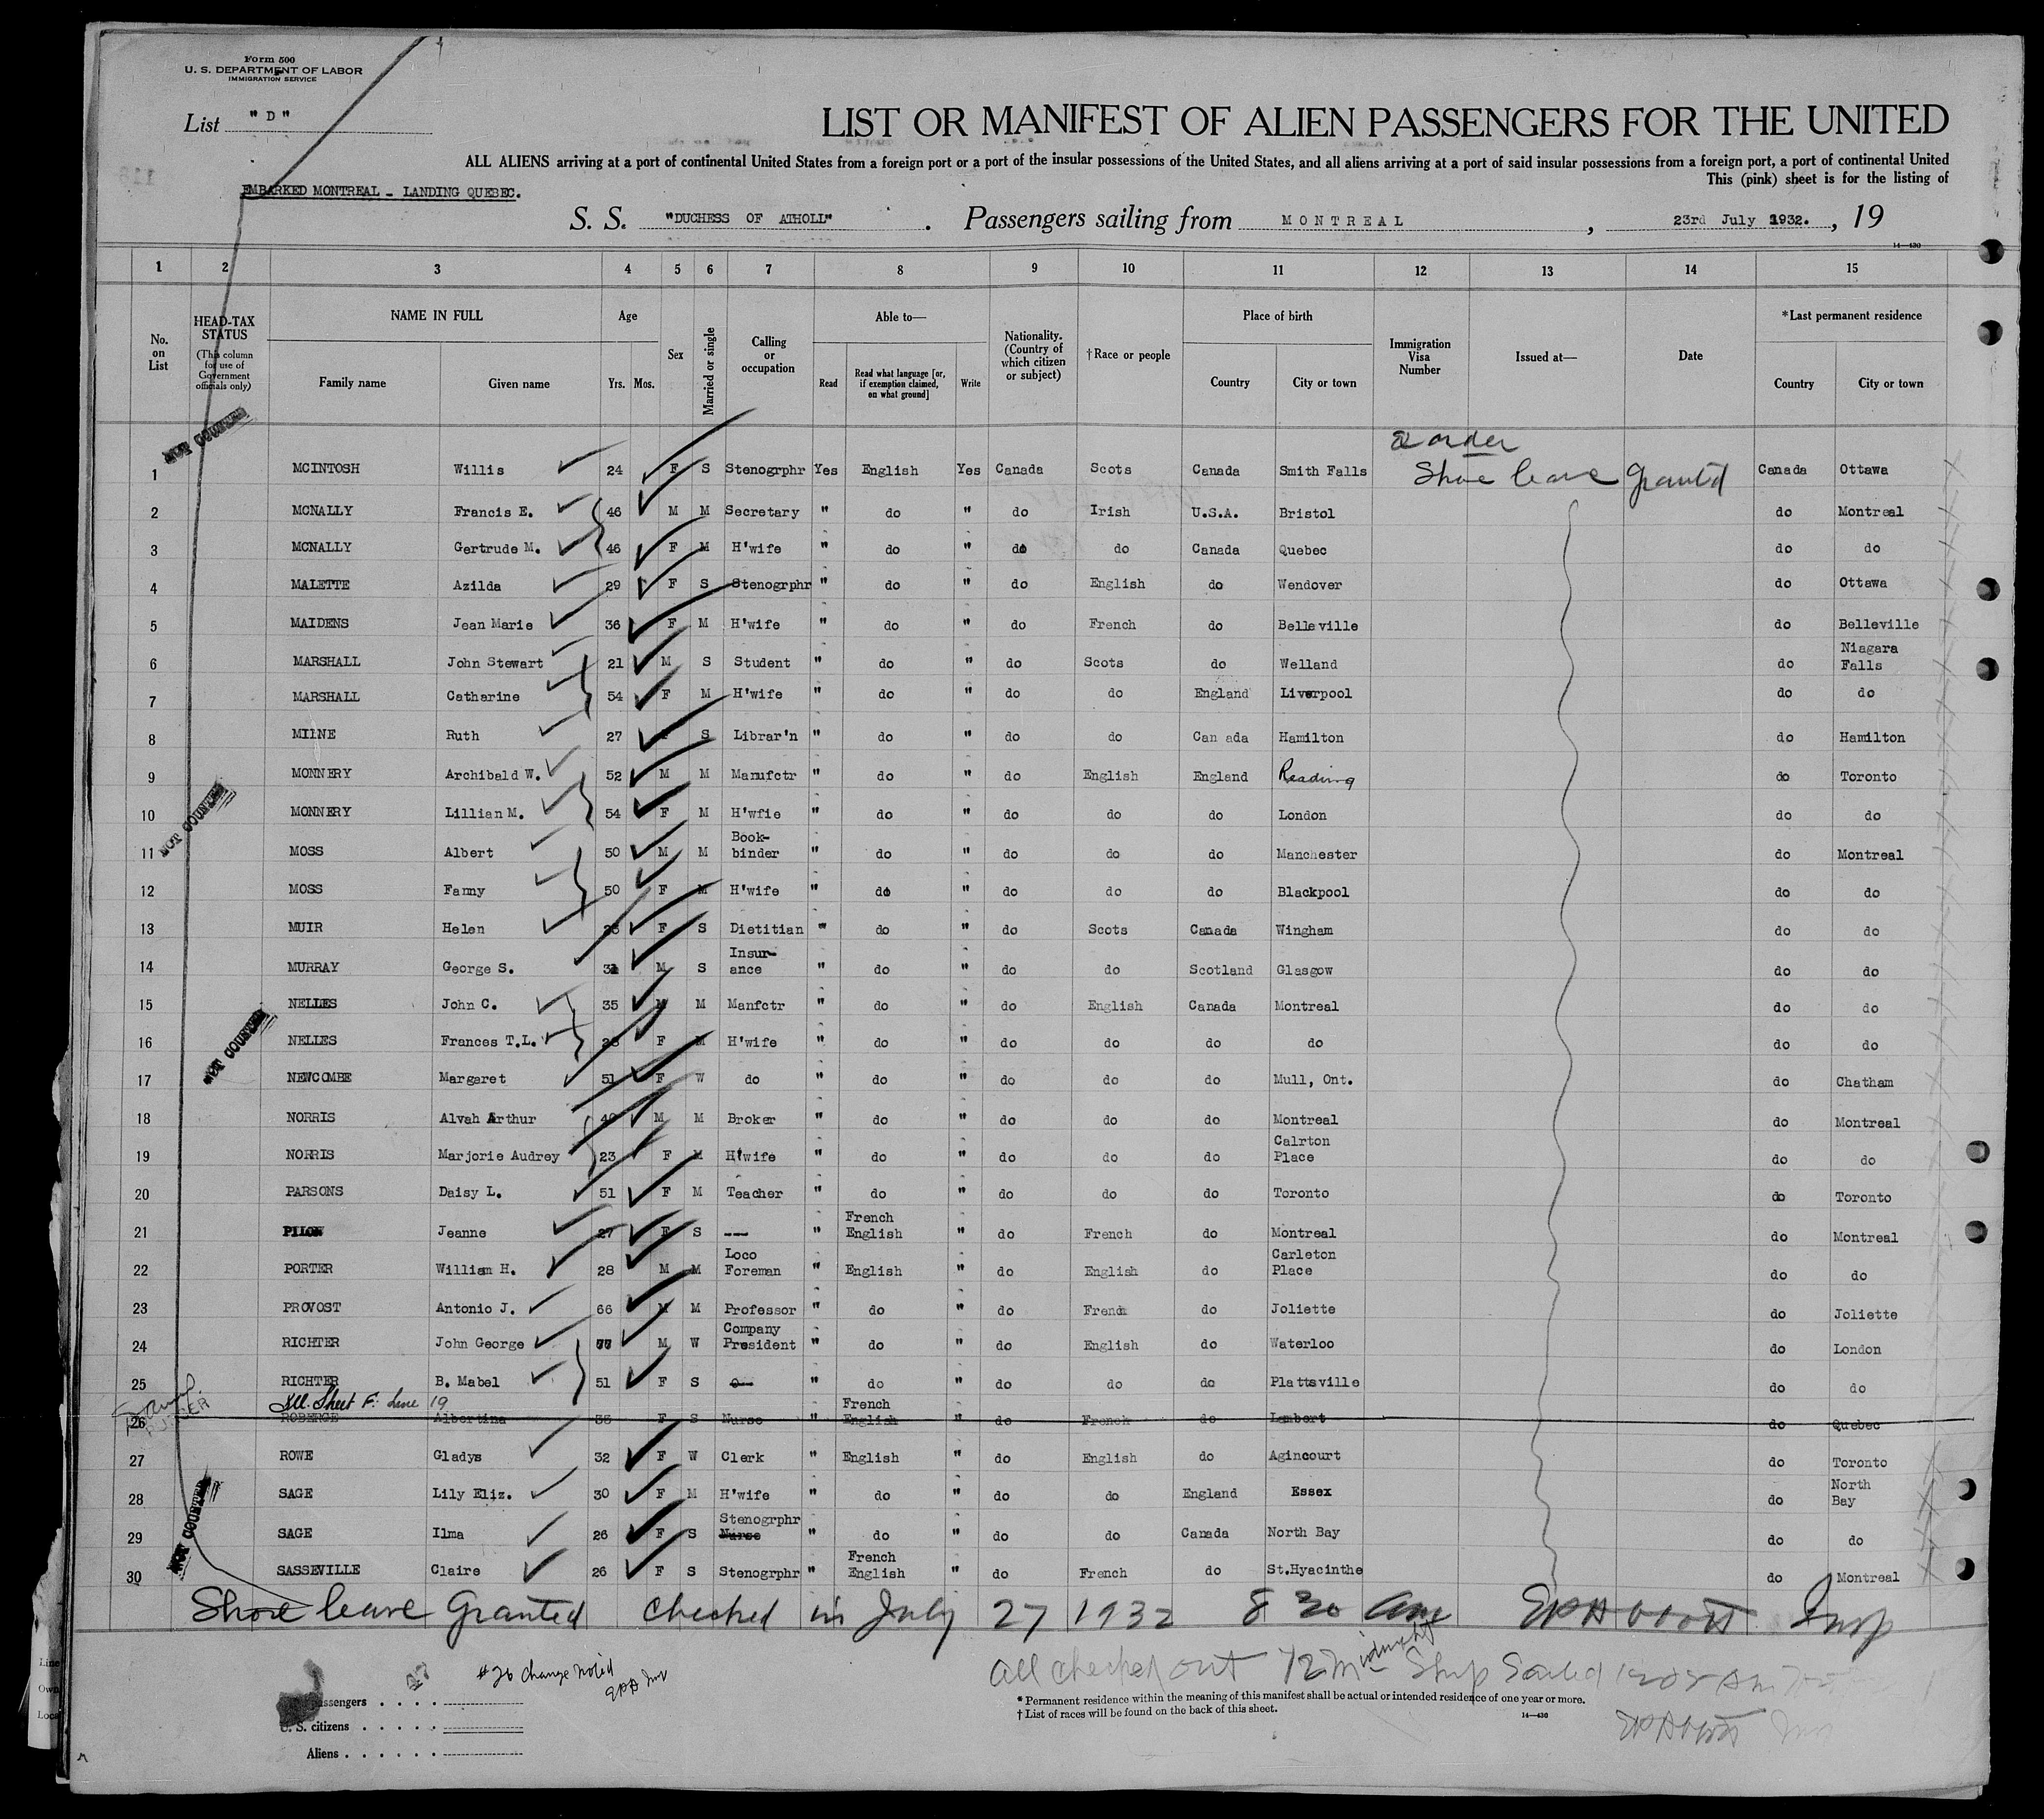 Form 500
U. S. DEPARTMENT OF LABOR
IMMIGRATION SERVICE
List "D"
LIST OR MANIFEST OF ALIEN PASSENGERS FOR THE UNITED
ALL ALIENS arriving at a port of continental United States from a foreign port or a port of the insular possessions of the United States, and all aliens arriving at a port of said insular possessions from a foreign port, a port of continental United
This (pink) sheet is for the listing of
EMBARKED MONTREAL - LANDING QUEBEC.
S. S. "DUCHESS OF ATHOLL" . Passengers sailing from MONTREAL , 23rd July 1932. , 19
14—430
1 2 3 4 5 6 7 8 9 10 11 12 13 14 15
No. on List
HEAD-TAX STATUS (This column for use of Government officials only)
NAME IN FULL
Family name Given name
Age
Yrs. Mos.
Sex
Married or single
Calling or occupation
Able to—
Read Read what language [or, if exemption claimed, on what ground] Write
Nationality. (Country of which citizen or subject)
†Race or people
Place of birth
Country City or town
Immigration Visa Number
Issued at—
Date
*Last permanent residence
Country City or town
NOT COUNTED
Shore leave granted
1 MCINTOSH Willis 24 F S Stenogrphr Yes English Yes Canada Scots Canada Smith Falls Canada Ottawa
2 MCNALLY Francis E. 46 M M Secretary " do " do Irish U.S.A. Bristol do Montreal
3 MCNALLY Gertrude M. 46 F M H'wife " do " do do Canada Quebec do do
4 MALETTE Azilda 29 F S Stenogrphr " do " do English do Wendover do Ottawa
5 MAIDENS Jean Marie 36 F M H'wife " do " do French do Belleville do Belleville
6 MARSHALL John Stewart 21 M S Student " do " do Scots do Welland do Niagara Falls
7 MARSHALL Catharine 54 F M H'wife " do " do do England Liverpool do do
8 MILNE Ruth 27 S Librar'n " do " do do Can ada Hamilton do Hamilton
9 MONNERY Archibald W. 52 M M Manufctr " do " do English England Reading do Toronto
NOT COUNTED
10 MONNERY Lillian M. 54 F M H'wfie " do " do do do London do do
11 MOSS Albert 50 M M Book-binder " do " do do do Manchester do Montreal
12 MOSS Fanny 50 F M H'wife " do " do do do Blackpool do do
13 MUIR Helen F S Dietitian " do " do Scots Canada Wingham do do
14 MURRAY George S. M S Insur-ance " do " do do Scotland Glasgow do do
15 NELLES John C. 35 M M Manfctr " do " do English Canada Montreal do do
NOT COUNTED
16 NELLES Frances T.L. F M H'wife " do " do do do do do do
17 NEWCOMBE Margaret 51 F W do " do " do do do Mull, Ont. do Chatham
18 NORRIS Alvah Arthur M M Broker " do " do do do Montreal do Montreal
19 NORRIS Marjorie Audrey 23 F M H'wife " do " do do do Calrton Place do do
20 PARSONS Daisy L. 51 F M Teacher " do " do do do Toronto do Toronto
21 PILON Jeanne 27 F S --- " French English " do French do Montreal do Montreal
22 PORTER William H. 28 M M Loco Foreman " English " do English do Carleton Place do do
23 PROVOST Antonio J. 66 M M Professor " do " do French do Joliette do Joliette
24 RICHTER John George 77 M W Company President " do " do English do Waterloo do London
25 RICHTER B. Mabel 51 F S " do " do do do Plattsville do do
Sheet F: Line 19
26 ROBERGE Albertina F S Nurse " French English " do French do Lambert do Quebec
27 ROWE Gladys 32 F W Clerk " English " do English do Agincourt do Toronto
28 SAGE Lily Eliz. 30 F M H'wife " do " do do England Essex do North Bay
NOT COUNTED
29 SAGE Ilma 26 F S Stenogrphr Nurse " do " do do Canada North Bay do do
30 SASSEVILLE Claire 26 F S Stenogrphr " French English " do French do St.Hyacinthe do Montreal
Shore leave Granted checked in July 27 1932 8 30 am EPAbbott Insp
All checked out 12 Midnight Ship Sailed
#26 change noted EPA Ins
EPAbbott Ins
passengers . . . .
U. S. citizens . . . . .
Aliens . . . . . .
* Permanent residence within the meaning of this manifest shall be actual or intended residence of one year or more.
† List of races will be found on the back of this sheet.
14—430
Line
Own
Loca